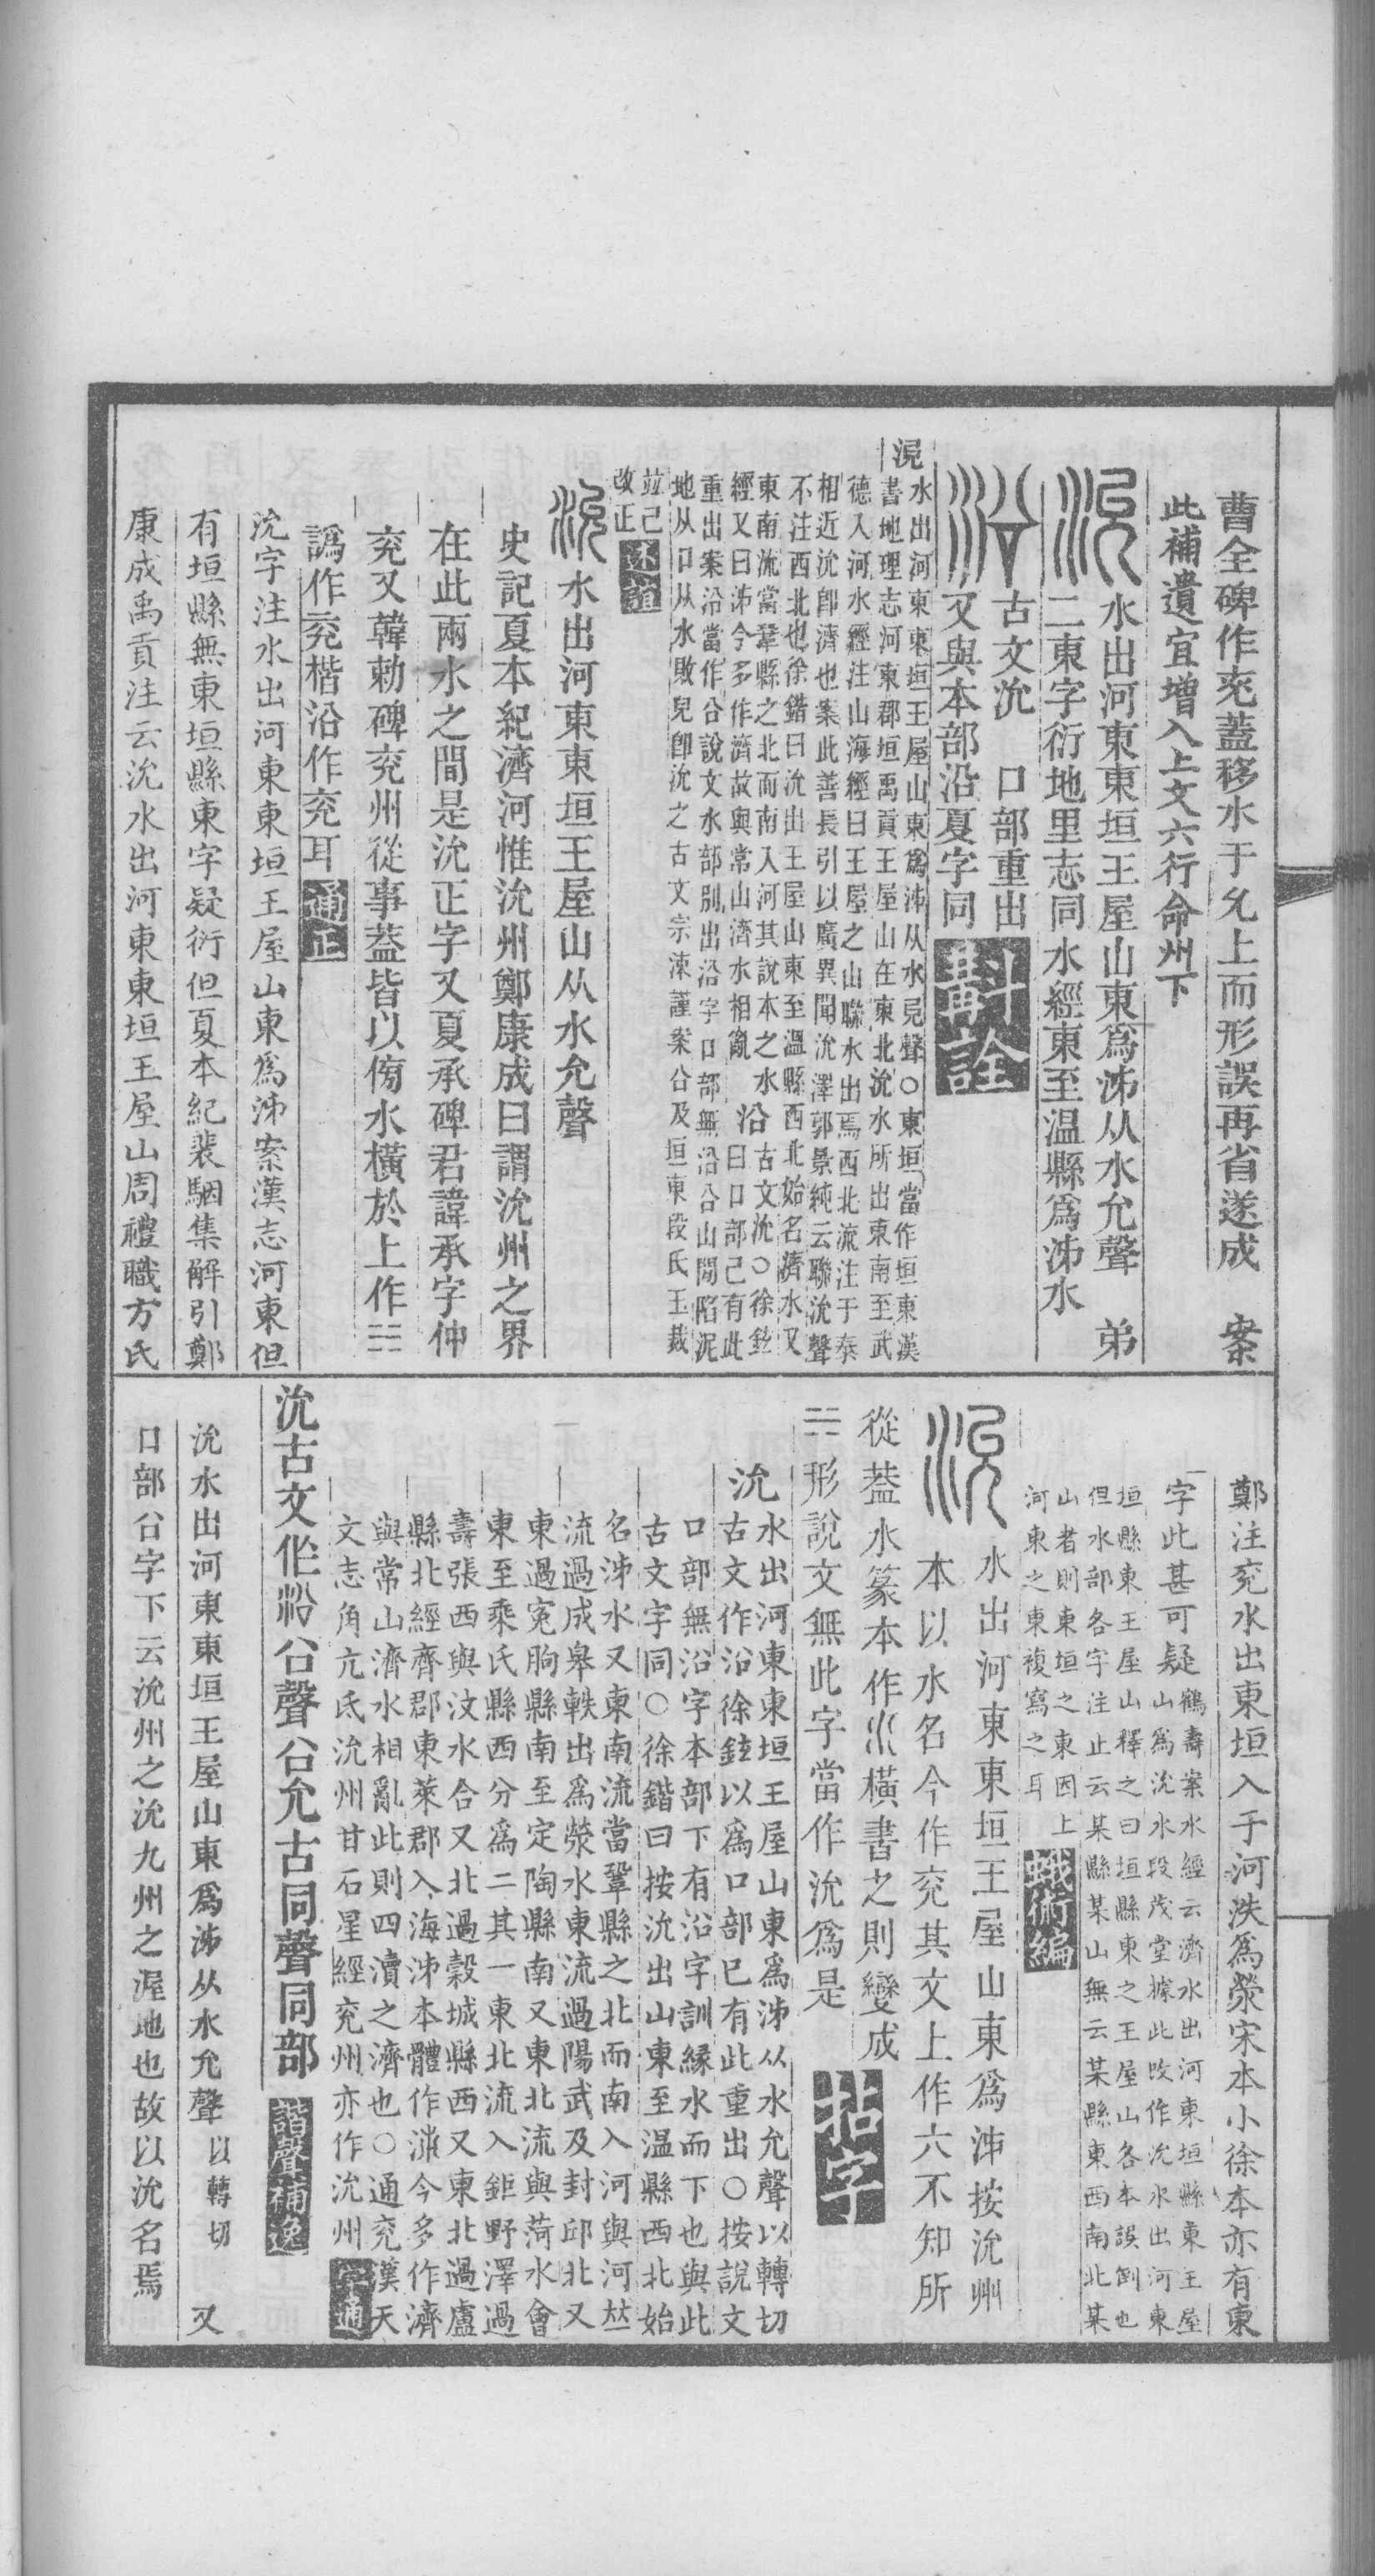 曹全碑作兖蓋移水于允上而形誤再省遂成　案
此補遺宜增入上文六行命州下
水出河東東垣王屋山東爲泲从水允聲　弟
二東字衍地里志同水經東至温縣爲泲水
古文沇　口部重出
又與本部沿夏字同　斠詮
沇水出河東東垣王屋山東爲泲从水兒聲○東垣當作垣東漢
書地理志河東郡垣禹貢王屋山在東北沇水所出東南至武
德入河水經注山海經曰王屋之山聯水出焉西北流注于泰
相近沇卽濟也案此善長引以廣異聞沇澤郭景純云聯沇聲
不注西北也徐鍇曰沇出王屋山東至溫縣西北始名濟水又
東南流當鞏縣之北而南入河其說本之水　沿　古文沇○徐鉉
經又曰泲今多作濟故與常山濟水相亂　曰口部已有此
重出案沿當作㕣說文水部別出沿字口部無沿㕣山閒陷泥
地从口从水敗皃卽沇之古文宗涑謹案㕣及垣東段氏玉裁
竝已
改正　述誼
沇水出河東東垣王屋山从水允聲
史記夏本紀濟河惟沇州鄭康成曰謂沇州之界
在此兩水之間是沇正字又夏承碑君諱承字仲
兖又韓勅碑兖州從事葢皆以㑂水橫於上作三
譌作兖楷沿作兖耳　通正
沇字注水出河東東垣王屋山東爲泲案漢志河東但
有垣縣無東垣縣東字疑衍但夏本紀裴駰集解引鄭
康成禹貢注云沇水出河東東垣王屋山周禮職方氏
鄭注兖水出東垣入于河泆爲滎宋本小徐本亦有東
字此甚可疑　鶴壽案水經云濟水出河東垣縣東王屋
山爲沇水段茂堂據此改作沇水出河東
垣縣東王屋山釋之曰垣縣東之王屋山各本誤倒也
但水部各字注止云某縣某山無云某縣東西南北某
山者則東垣之東因上
河東之東複寫之耳　蛾術編
水出河東東垣王屋山東爲泲按沇州
本以水名今作兖其文上作六不知所
從葢水篆本作巛橫書之則變成
三形說文無此字當作沇爲是　拈字
沇　水出河東東垣王屋山東爲泲从水允聲以轉切
古文作沿徐鉉以爲口部已有此重出○按說文
口部無沿字本部下有沿字訓緣水而下也與此
古文字同○徐鍇曰按沇出山東至温縣西北始
名泲水又東南流當鞏縣之北而南入河與河竝
流過成皋軼出爲滎水東流過陽武及封邱北又
東過寃朐縣南至定陶縣南又東北流與菏水會
東至乘氏縣西分爲二其一東北流入鉅野澤過
壽張西與汶水合又北過穀城縣西又東北過盧
縣北經齊郡東萊郡入海泲本體作㴉今多作濟
與常山濟水相亂此則四瀆之濟也○通兖漢天
文志角亢氐沇州甘石星經兖州亦作沇州　宷通
沇古文作㳂㕣聲㕣允古同聲同部　諧聲補逸
沇水出河東東垣王屋山東爲泲从水允聲以轉切　又
口部㕣字下云沇州之沇九州之渥地也故以沇名焉